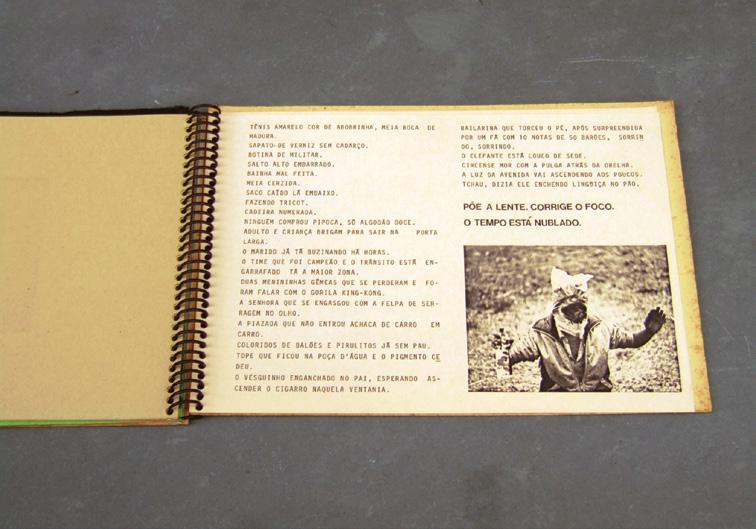 TÊNIS AMARELO COR DE ABOBRINHA, MEIA BOCA DE
MADURA.
SAPATO DE VERNIZ SEM CADARÇO.
BOTINA DE MILITAR.
SALTO ALTO EMBARRADO.
BAINHA MAL FEITA.
MEIA CERZIDA.
SACO CAÍDO LÁ EMBAIXO.
FAZENDO TRICOT.
CADEIRA NUMERADA.
NINGUÉM COMPROU PIPOCA, SÓ ALGODÃO DOCE.
ADULTO E CRIANÇA BRIGAM PARA SAIR NA PORTA
LARGA.
O MARIDO JÁ TÁ BUZINANDO HÁ HORAS.
O TIME QUE FOI CAMPEÃO E O TRÂNSITO ESTÁ EN-
GARRAFADO TÁ A MAIOR ZONA.
DUAS MENININHAS GÊMEAS QUE SE PERDERAM E FO-
RAM FALAR COM O GORILA KING-KONG.
A SENHORA QUE SE ENGASGOU COM A FELPA DE SER-
RAGEM NO OLHO.
A PIAZADA QUE NÃO ENTROU ACHACA DE CARRO EM
CARRO.
COLORIDOS DE BALÕES E PIRULITOS JÁ SEM PAU.
TOPE QUE FICOU NA POÇA D'ÁGUA E O PIGMENTO CE
DEU.
O VESGUINHO ENGANCHADO NO PAI, ESPERANDO AS-
CENDER O CIGARRO NAQUELA VENTANIA.
BAILARINA QUE TORCEU O PÉ, APÓS SURPREENDIDA
POR UM FÃ COM 10 NOTAS DE 50 BARÕES, SORRIN
DO, SORRINDO.
O ELEFANTE ESTÁ LOUCO DE SEDE.
CIRCENSE MOR COM A PULGA ATRÁS DA ORELHA.
A LUZ DA AVENIDA VAI ASCENDENDO AOS POUCOS.
TCHAU, DIZIA ELE ENCHENDO LINGÜIÇA NO PÃO.
PÕE A LENTE. CORRIGE O FOCO.
O TEMPO ESTÁ NUBLADO.